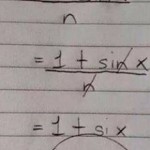 n
= 1 + sin x
n
= 1 + six